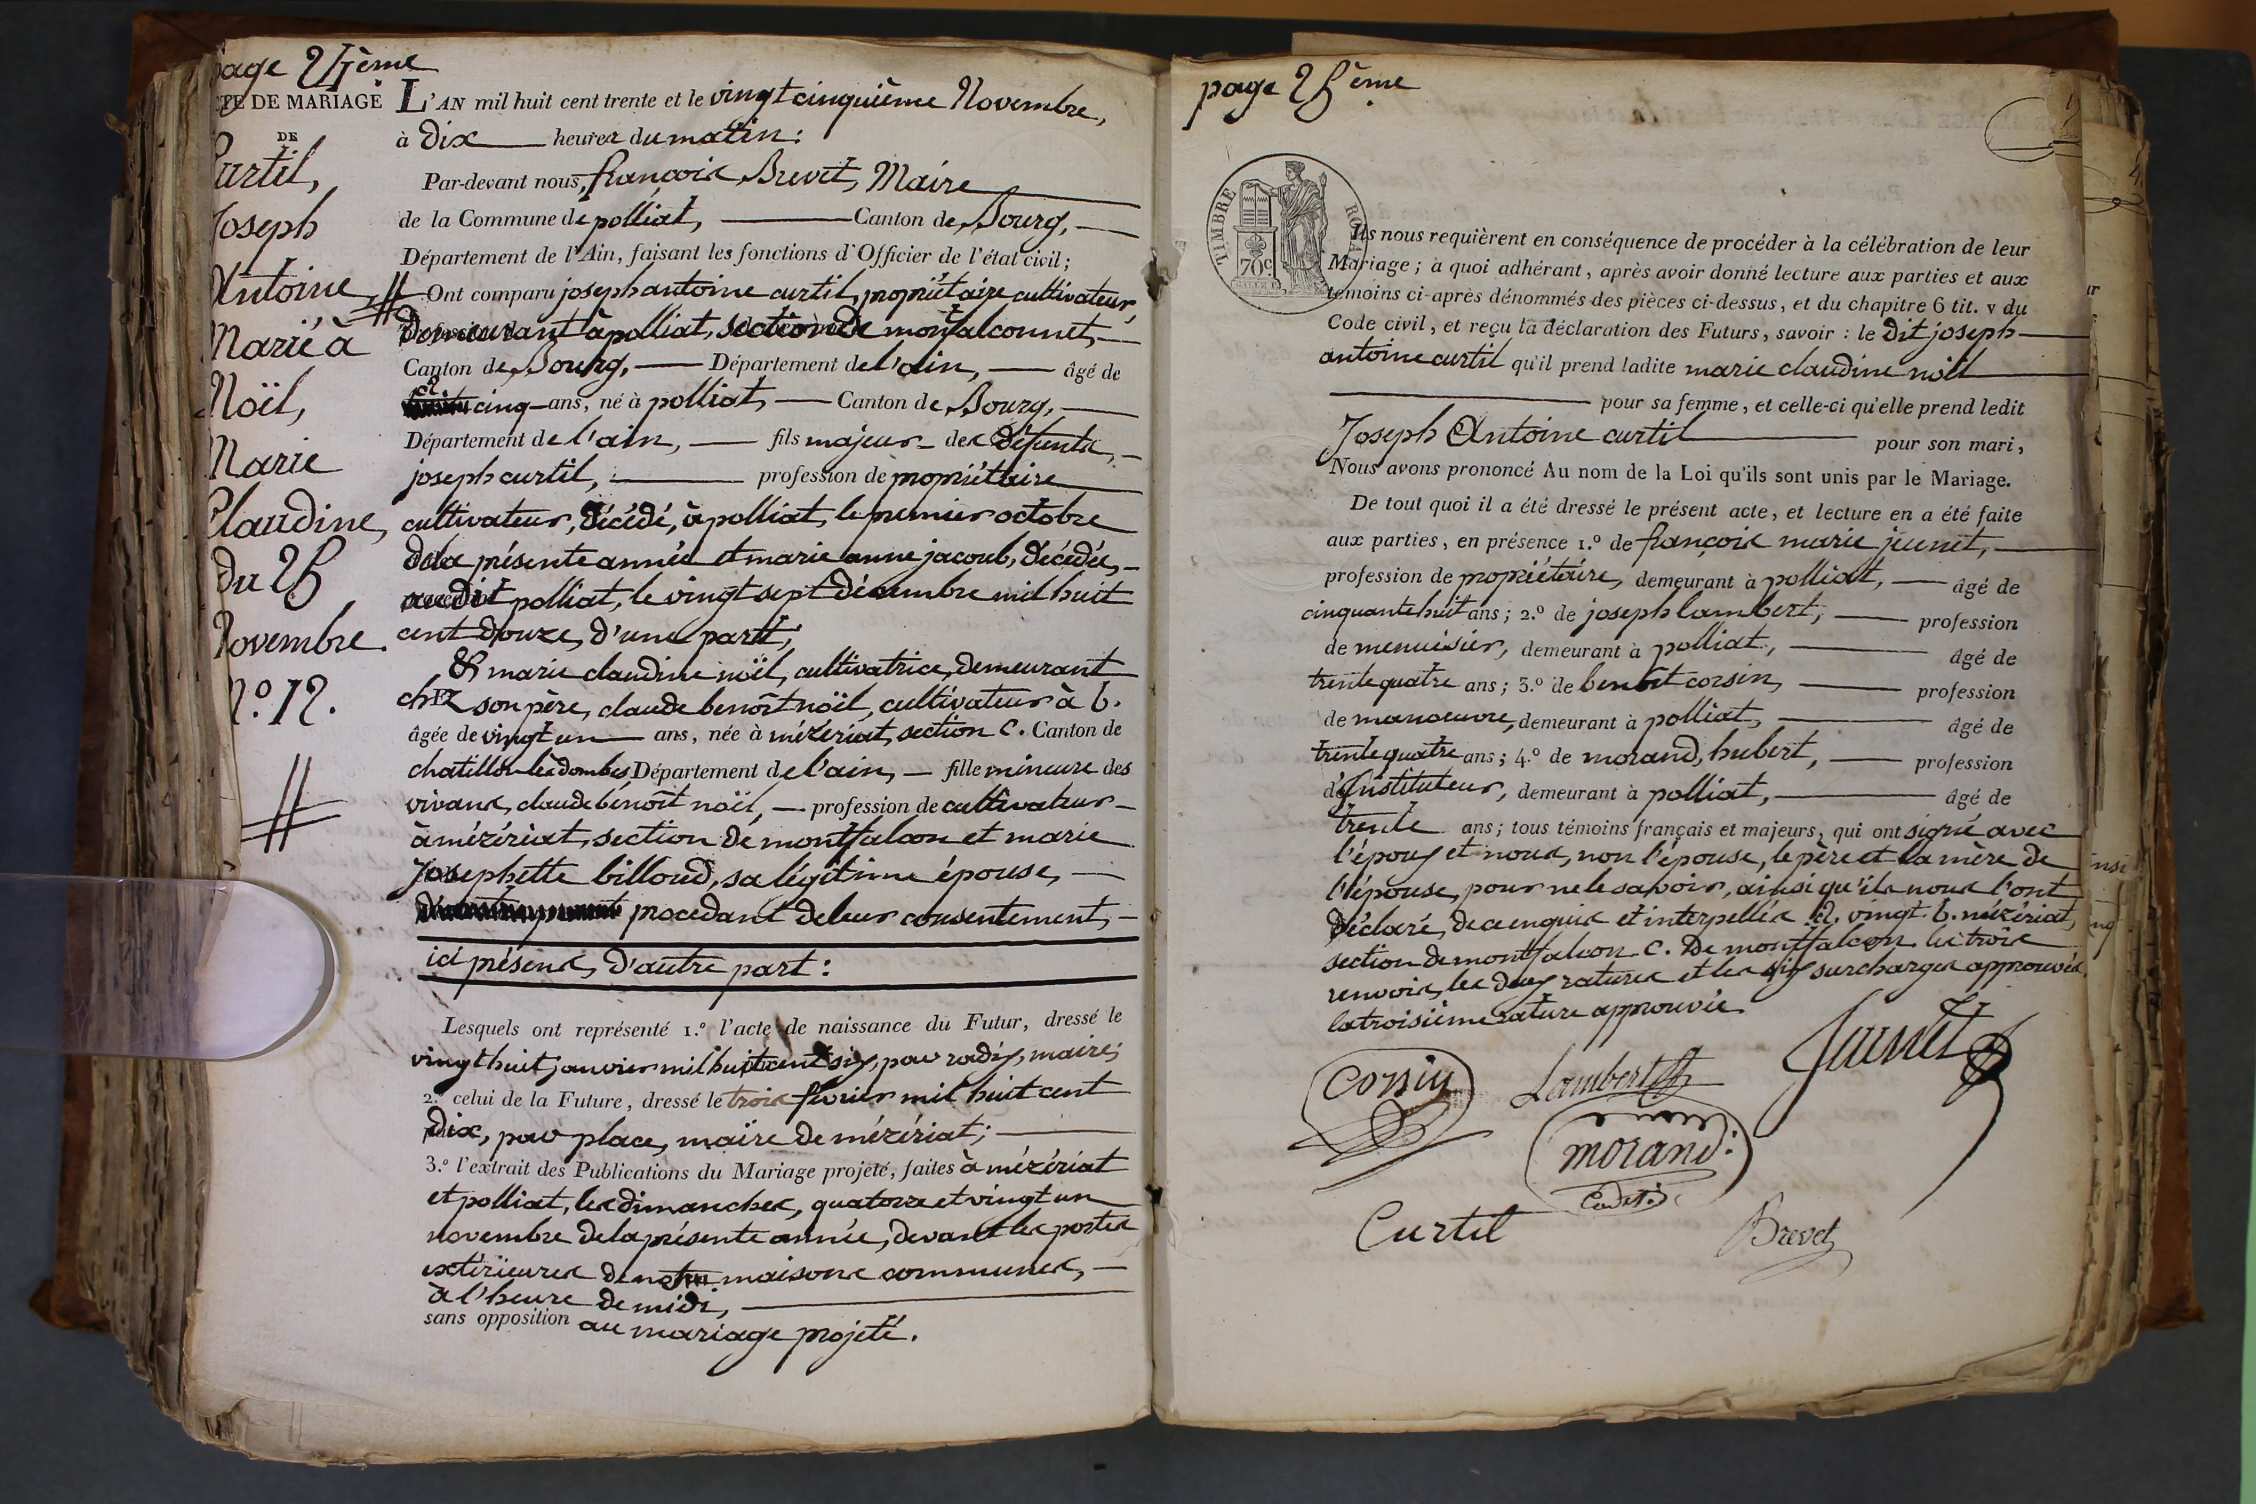 page 24ème
TE DE MARIAGE
DE
Curtil,
Joseph
Antoine
Marié à
Noël,
Marie
Claudine,
du 25
Novembre.
N.o 12.
L'AN mil huit cent trente et le vingt cinquième Novembre,
à Dix heures du matin:
Par-devant nous, françois Brevet, Maire
de la Commune de polliat, Canton de Bourg,
Département de l'Ain, faisant les fonctions d'Officier de l'état civil;
Ont comparu joseph antoine curtil, propriétaire cultivateur,
Demeurant à polliat, section de montfalconnet,
Canton de Bourg, Département de l'ain, âgé de
a. cinq ans, né à polliat, Canton de Bourg,
Département de l'ain, fils majeur des Défunts,
joseph curtil, profession de propriétaire
cultivateur, décédé, à polliat, le premier octobre
de la présente année et marie anne jacoub, décédée,
audit polliat, le vingt sept décembre mil huit
cent douze, d'une part;
Et marie claudine noël, cultivatrice, demeurant
chez son père, claude benoît noël, cultivateur à b.
âgée de vingt un ans, née à mézériat, section C. Canton de
chatillon les dombes Département de l'ain, fille mineure des
vivans, claude bénoît noël, profession de cultivateur
à mézériat, section de montfalcon et marie
Josephette billoud, sa légitime épouse,
procedant de leur consentement,
ici présens, d'autre part:
Lesquels ont représenté 1.o l'acte de naissance du Futur, dressé le
vingt huit janvier mil huit cent six, par rodix, maire;
2.o celui de la Future, dressé le trois février mil huit cent
Dix, par place, maire de mézériat;
3.o l'extrait des Publications du Mariage projeté, faites à mézériat
et polliat, les dimanches, quatorze et vingt un
novembre de la présente année, devant les portes
extérieures de nos maisons communes,
à l'heure de midi,
sans opposition au mariage projeté.
page 25ème
TIMBRE ROYAL
70c
Ils nous requièrent en conséquence de procéder à la célébration de leur
Mariage; à quoi adhérant, après avoir donné lecture aux parties et aux
témoins ci-après dénommés des pièces ci-dessus, et du chapitre 6 tit. v du
Code civil, et reçu la déclaration des Futurs, savoir: le dit joseph
antoine curtil qu'il prend ladite marie claudine noël
pour sa femme, et celle-ci qu'elle prend ledit
Joseph Antoine curtil pour son mari,
Nous avons prononcé Au nom de la Loi qu'ils sont unis par le Mariage.
De tout quoi il a été dressé le présent acte, et lecture en a été faite
aux parties, en présence 1.o de françois marie jeunet,
profession de propriétaire, demeurant à polliat, âgé de
cinquante huit ans; 2.o de joseph lambert, profession
de menuisier, demeurant à polliat, âgé de
trente quatre ans; 3.o de benoît corsin, profession
de manoeuvre, demeurant à polliat, âgé de
trente quatre ans; 4.o de morand, hubert, profession
d'Instituteur, demeurant à polliat, âgé de
trente ans; tous témoins français et majeurs, qui ont signé avec
l'époux et nous, non l'épouse, le père et la mère de
l'épouse, pour ne le savoir, ainsi qu'ils nous l'ont
déclaré, de ce enquis et interpellés. a. vingt. b. mézériat,
section de montfalcon. C. De montfalcon. les trois
renvois, les deux ratures et les six surcharges approuvés.
la troisième rature approuvée.
Corsin
Lambert
Jeunet
morand.
Cadet.
Curtil
Brevet